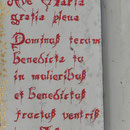 Ave Maria
gratia plena
Dominus tecum
benedicta tu
in mulieribus
et benedictus
fructus ventris